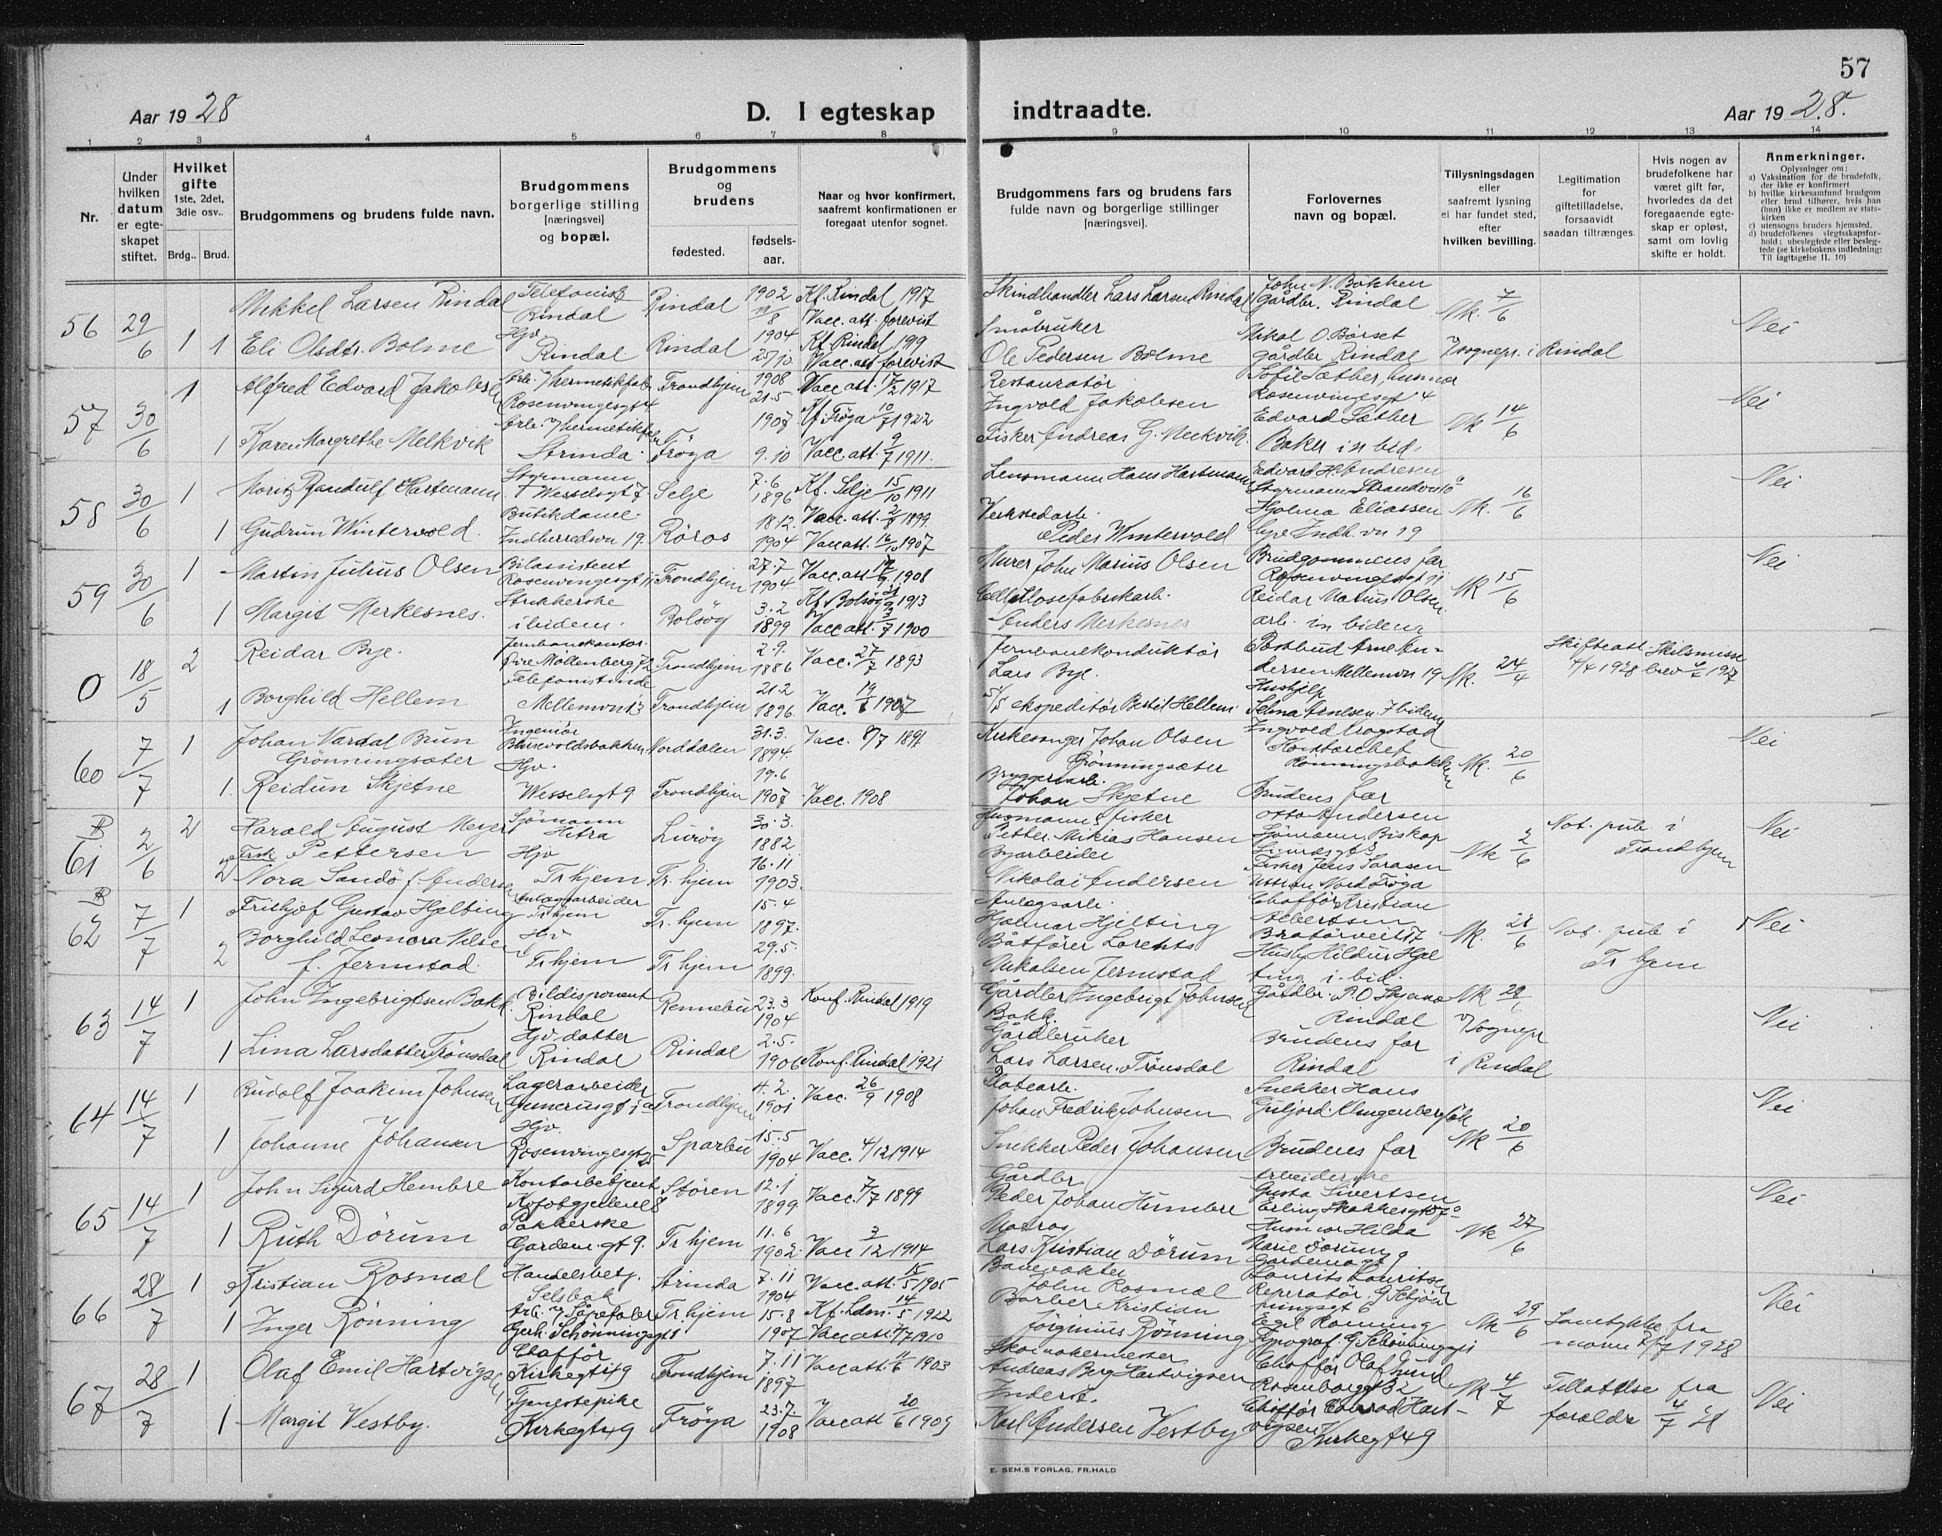 57
Aar 1928
D. I egteskap
indtraadte.
Aar 1928.
1 2 3 4 5 6 7 8
9 10 11 12 13 14
Nr.
Under hvilken datum er egte-skapet stiftet.
Hvilket gifte
1ste, 2det, 3die osv..
Brdg.. Brud.
Brudgommens og brudens fulde navn.
Brudgommens
borgerlige stilling
[næringsvei]
og bopæl.
Brudgommens
og
brudens
fødested.
fødsels-aar.
Naar og hvor konfirmert,
saafremt konfirmationen er
foregaat utenfor sognet.
Brudgommens fars og brudens fars
fulde navn og borgerlige stillinger
[næringsvei].
Forlovernes
navn og bopæl.
Tillysningsdagen
eller
saafremt lysning
ei har fundet sted,
efter
hvilken bevilling.
Legitimation
for
giftetilladelse,
forsaavidt
saadan tiltrænges.
Hvis nogen av
brudefolkene har
været gift før,
hvorledes da det
foregaaende egte-
skap er opløst,
samt om lovlig
skifte er holdt.
Anmerkninger.
Oplysninger om:
a) Vaksination for de brudefolk,
der ikke er konfirmert
b) hvilke kirkesamfund brudgom
eller brud tilhører, hvis han
(hun) ikke er medlem av stats-
kirken
c) utensogns bruders hjemsted.
d) brudefolkenes slegtsskapsfor-
hold; ubeslegtede eller besleg-
tede (se kirkebokens indledning:
Til iagttagelse II. 10)
56 29/6 1 Mikkel Larsen Rindal Telefonist Rindal Rindal 1902 11/8 Kf. Rindal 1917 Vacc. att. forevist Skindhandler Lars Larsen Rindal John N. Bakken Gårdbr. Rindal Mk. 7/6 Nei
1 Eli Olsdtr. Bolme Hjv. Rindal Rindal 1904 25/10 Kf. Rindal 1919 Vacc. att forevist Småbruker Ole Pedersen Bolme Mikal O. Børset gårdbr Rindal 7 sognepr. i Rindal
57 30/6 1 Alfred Edvard Jakobsen Arb. v/hermetikfabr Rosenvingesgt 4 Trondhjem 1908 21.5 Vacc att. 1917 Restauratør Ingvold Jakobsen Sofie Sæther, husmor Rosenvingesgt 4 Mk 14/6 Nei
1 Karen Margrethe Melkvik Arb. v/hermetikfabr Strinda Frøya 1907 9.10 Kf. Frøya 10/7 1922 Vacc. att. 9/7 1911. Fisker Andreas G. Melkvik. Edvard Sæther Baker in bid.
58 30/6 1 Moritz Randulf Hartmann Styrmann Wesselsgt 7 Selje 7.6 1896 Kf. Selje 15/10 1911 Vacc. att. 1899. Lensmann Hans Hartmann Edvard H. Andresen Styrmann Mk. 16/6 Nei
1 Gudrun Wintervold. Butikdame. Indherredsvn 19. Røros 18 12. 1904 Vacc att. 16/10 1907 Verkstedarb. Peder Wintervold Hjelma Eliassen Indh. vn 19
59 30/6 1 Martin Julius Olsen Bilassistent Rosenvingesgt 11 Trondhjem 27.7 1904 Vacc. att 1908 Murer John Marius Olsen Brudgommens far Rosenvingesgt 11 Mk 15/6 Nei
1 Margit Merkesnes. Strikkerske ibidem. Bolsøy 3.2 1899 Kf. Bolsøy 1913 Vacc att. 3/7 1900 Cellulosefabrikarb. Anders Merkesnes Reidar Marius Olsen. arb. in bidem
0 18/5 2 Reidar Bye. Jernbanekontor. Øvre Møllenberg 72 Trondhjem 2.9. 1886 Vacc. 27/7 1893 Jernbanekonduktør Lars Bye. Postbud Arne Andersen Mellemvn 19 Mk. 24/4 Skifteatt. Skilsmisse 1928 brev 1927
1 Borghild Hellem Telefonistinde Mellemvn 13 Trondhjem 21.2 1896. Vacc. 1907 5/5 ekspeditør Bertil Hellem. Hushjelp Selma Arntsen ibidem
60 7/7 1 Johan Vardal Brun Grønningsæter Ingeniør Norddalen 31.3. 1894. Vacc. 8/7 1897 Kirkesanger Johan Olsen Grønningsæter Ingvold Mk. 20/6 Nei
1. Reidun Skjetne Hjv. Wesselsgt 9 Trondhjem 19.6 1907 Vacc. 1908 Bryggeriarb. Johan Skjetne Brudens far
B 61 2/6 2 Harald August Meyer Pettersen Sjømann Hitra Lurøy 30.3. 1882 Husmann & fisker Petter Mikias Hansen Otto Andersen Sjømann, Mk 2/6 Not. pub. i Trondhjem Nei
2 Nora Sandø f. Andersen Hjv Trhjem Tr. hjem 16.11 1903. Byarbeider Nikolai Andersen Fisker Jens Nord Frøya
B 62 7/7 1 Frithjof Gustav Hjelting Anlægsarbeider Trhjem Tr. hjem 15.4 1897. Anlægsarb. Hjalmar Hjelting Chafför Kristian Albertsen Bratørveit 17 Mk. 21/6 Not. pub. i Tr hjem Nei
2 Borghild Leonora Nilsen f. Jermstad. Hjv Trhjem Tr hjem 29.5. 1899. Båtfører Lorents Nikolsen Jermstad Husby Hildur Hjelting i. bid.
63 14/7 1 John Ingebrigtsen Bakk. Bildisponent Rindal Rennebu 23.3 1904 Konf. Rindal 1919 Gårdbr Ingebrigt Johnsen Bakk. Gårdbr. P. O. Rindal Mk 22 Nei
1 Lina Larsdatter Trönsdal Hjv datter Rindal Rindal 2.5. 1906 Konf. Rindal 1921 Gårdbruker Lars Larsen Trönsdal Brudens far Rindal v/Sognepr i Rindal
64 14/7 1 Rudolf Joakim Johnsen Lagerarbeider Gunnerusgt Trondhjem 4.2. 1901 Vacc. 26/9 1908 Platearb. Johan Fredrik Johnsen Snekker Hans Mk 20/6 Nei
1 Johanne Johansen Hjv. Rosenvingesgt 25 Sparbu 15.5 1904 Vacc. 4/12 1914 Snekker Peder Johansen Brudens far
65 14/7 1 John Sigurd Hembre Kontorbetjent Støren 12.1 1899 Vacc. 7/7 1899 Gårdbr Peder Johan Humbre Arbeiderske Gusta Sivertsen Erling Skakkesgt Mk 27/6 Nei
1 Ruth Dörum Pakkerske Gardem. gt 9. Tr hjem 11.6 1902. Vacc 3/12 1914 Matros Lars Kristian Dörum Husmor Hilda Marie Dörum Gardemogt 9
66 28/7 1 Kristian Rosmæl Handelsbetj. Selsbak Strinda 7.11 1904 Vacc. att. 15/5 1905 Banevokter John Rosmæl Laurits Lauritsen Reperatør. G. Schjön ningsgt 6 Mk 29/6 Samtykke fra 1928 Nei
1 Inger Rönning Gerh. Schönningsgt Tr. hjem 15.8 1907 Kf. Ldm. 14/5 1922 Vacc att. 1910 Barber Kristian Rönning Egil Rönning Typograf. G. Schönningsgt
67 28/7 1 Olaf Emil Hartvigsen Chafför Kirkegt 49 Trondhjem 7.11 1897 Vacc att. 1903 Skomakermester Andreas Berg Hartvigsen Chafför Olaf Rosenborggt 32 Mk 4/7 Tillatelse fra foreldre 4/7 28 Nei
1 Margit Vestby. Tjenestepike Kirkegt 49 Frøya 23.7. 1908 Vacc att 20/6 1909 Inderst. Karl Andersen Vestby Chafför Hartvigsen Kirkegt 49
E. SEM.S FORLAG, FR.HALD